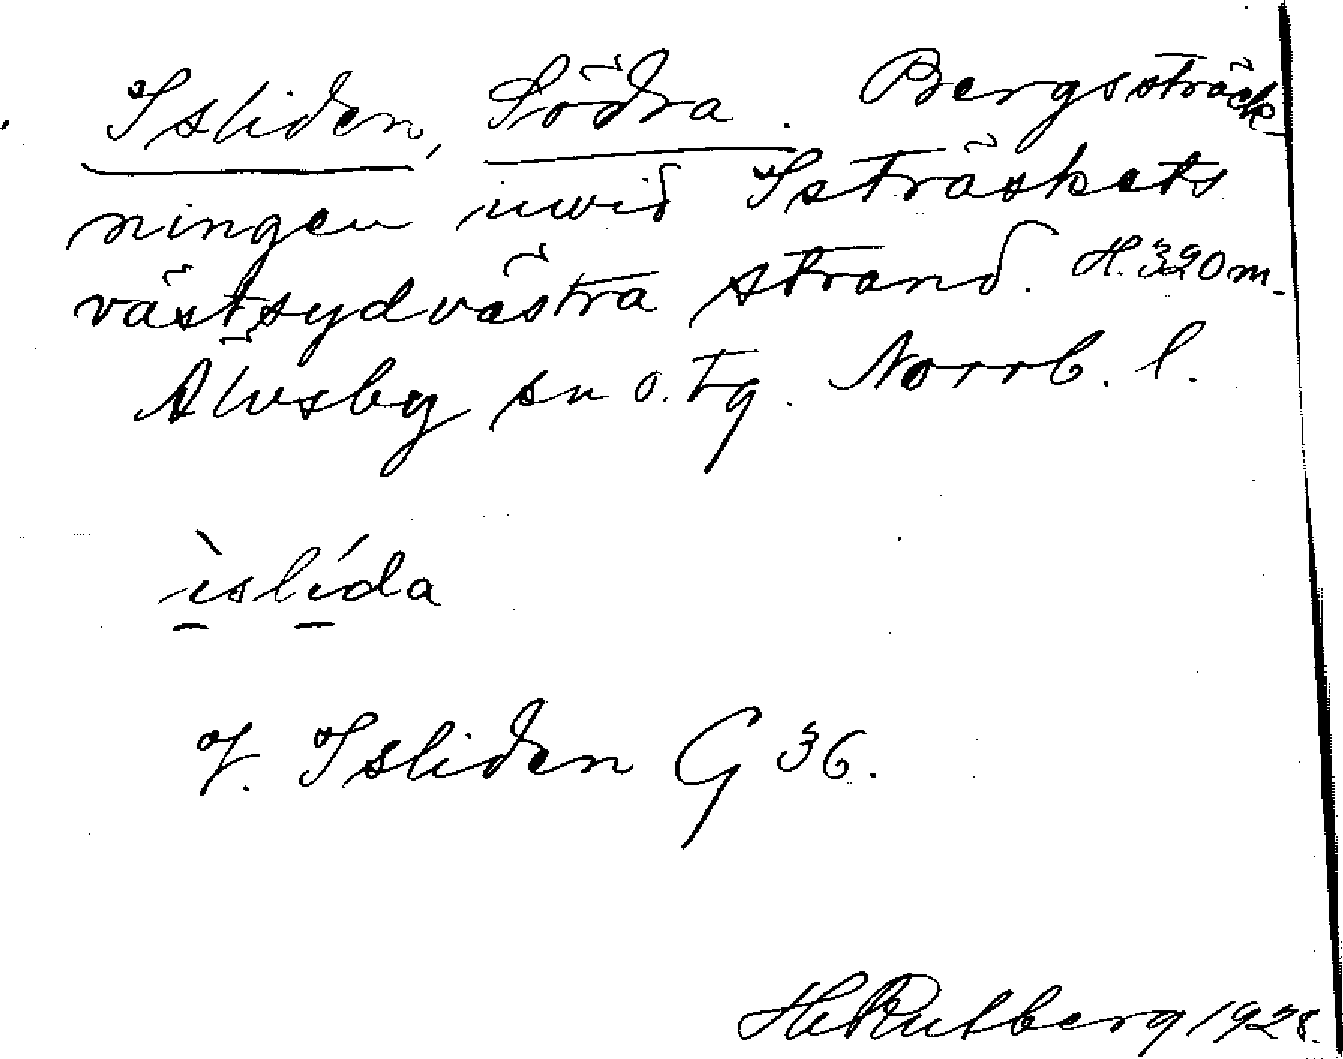 Isliden, Södra. Bergssträck-
ningen invid Isträskets
västsydvästra strand. H. 320 m.
Älvsby sn o. tg. Norrb. l.
ìslída
J. Isliden G 36.
H Rutberg 1928.